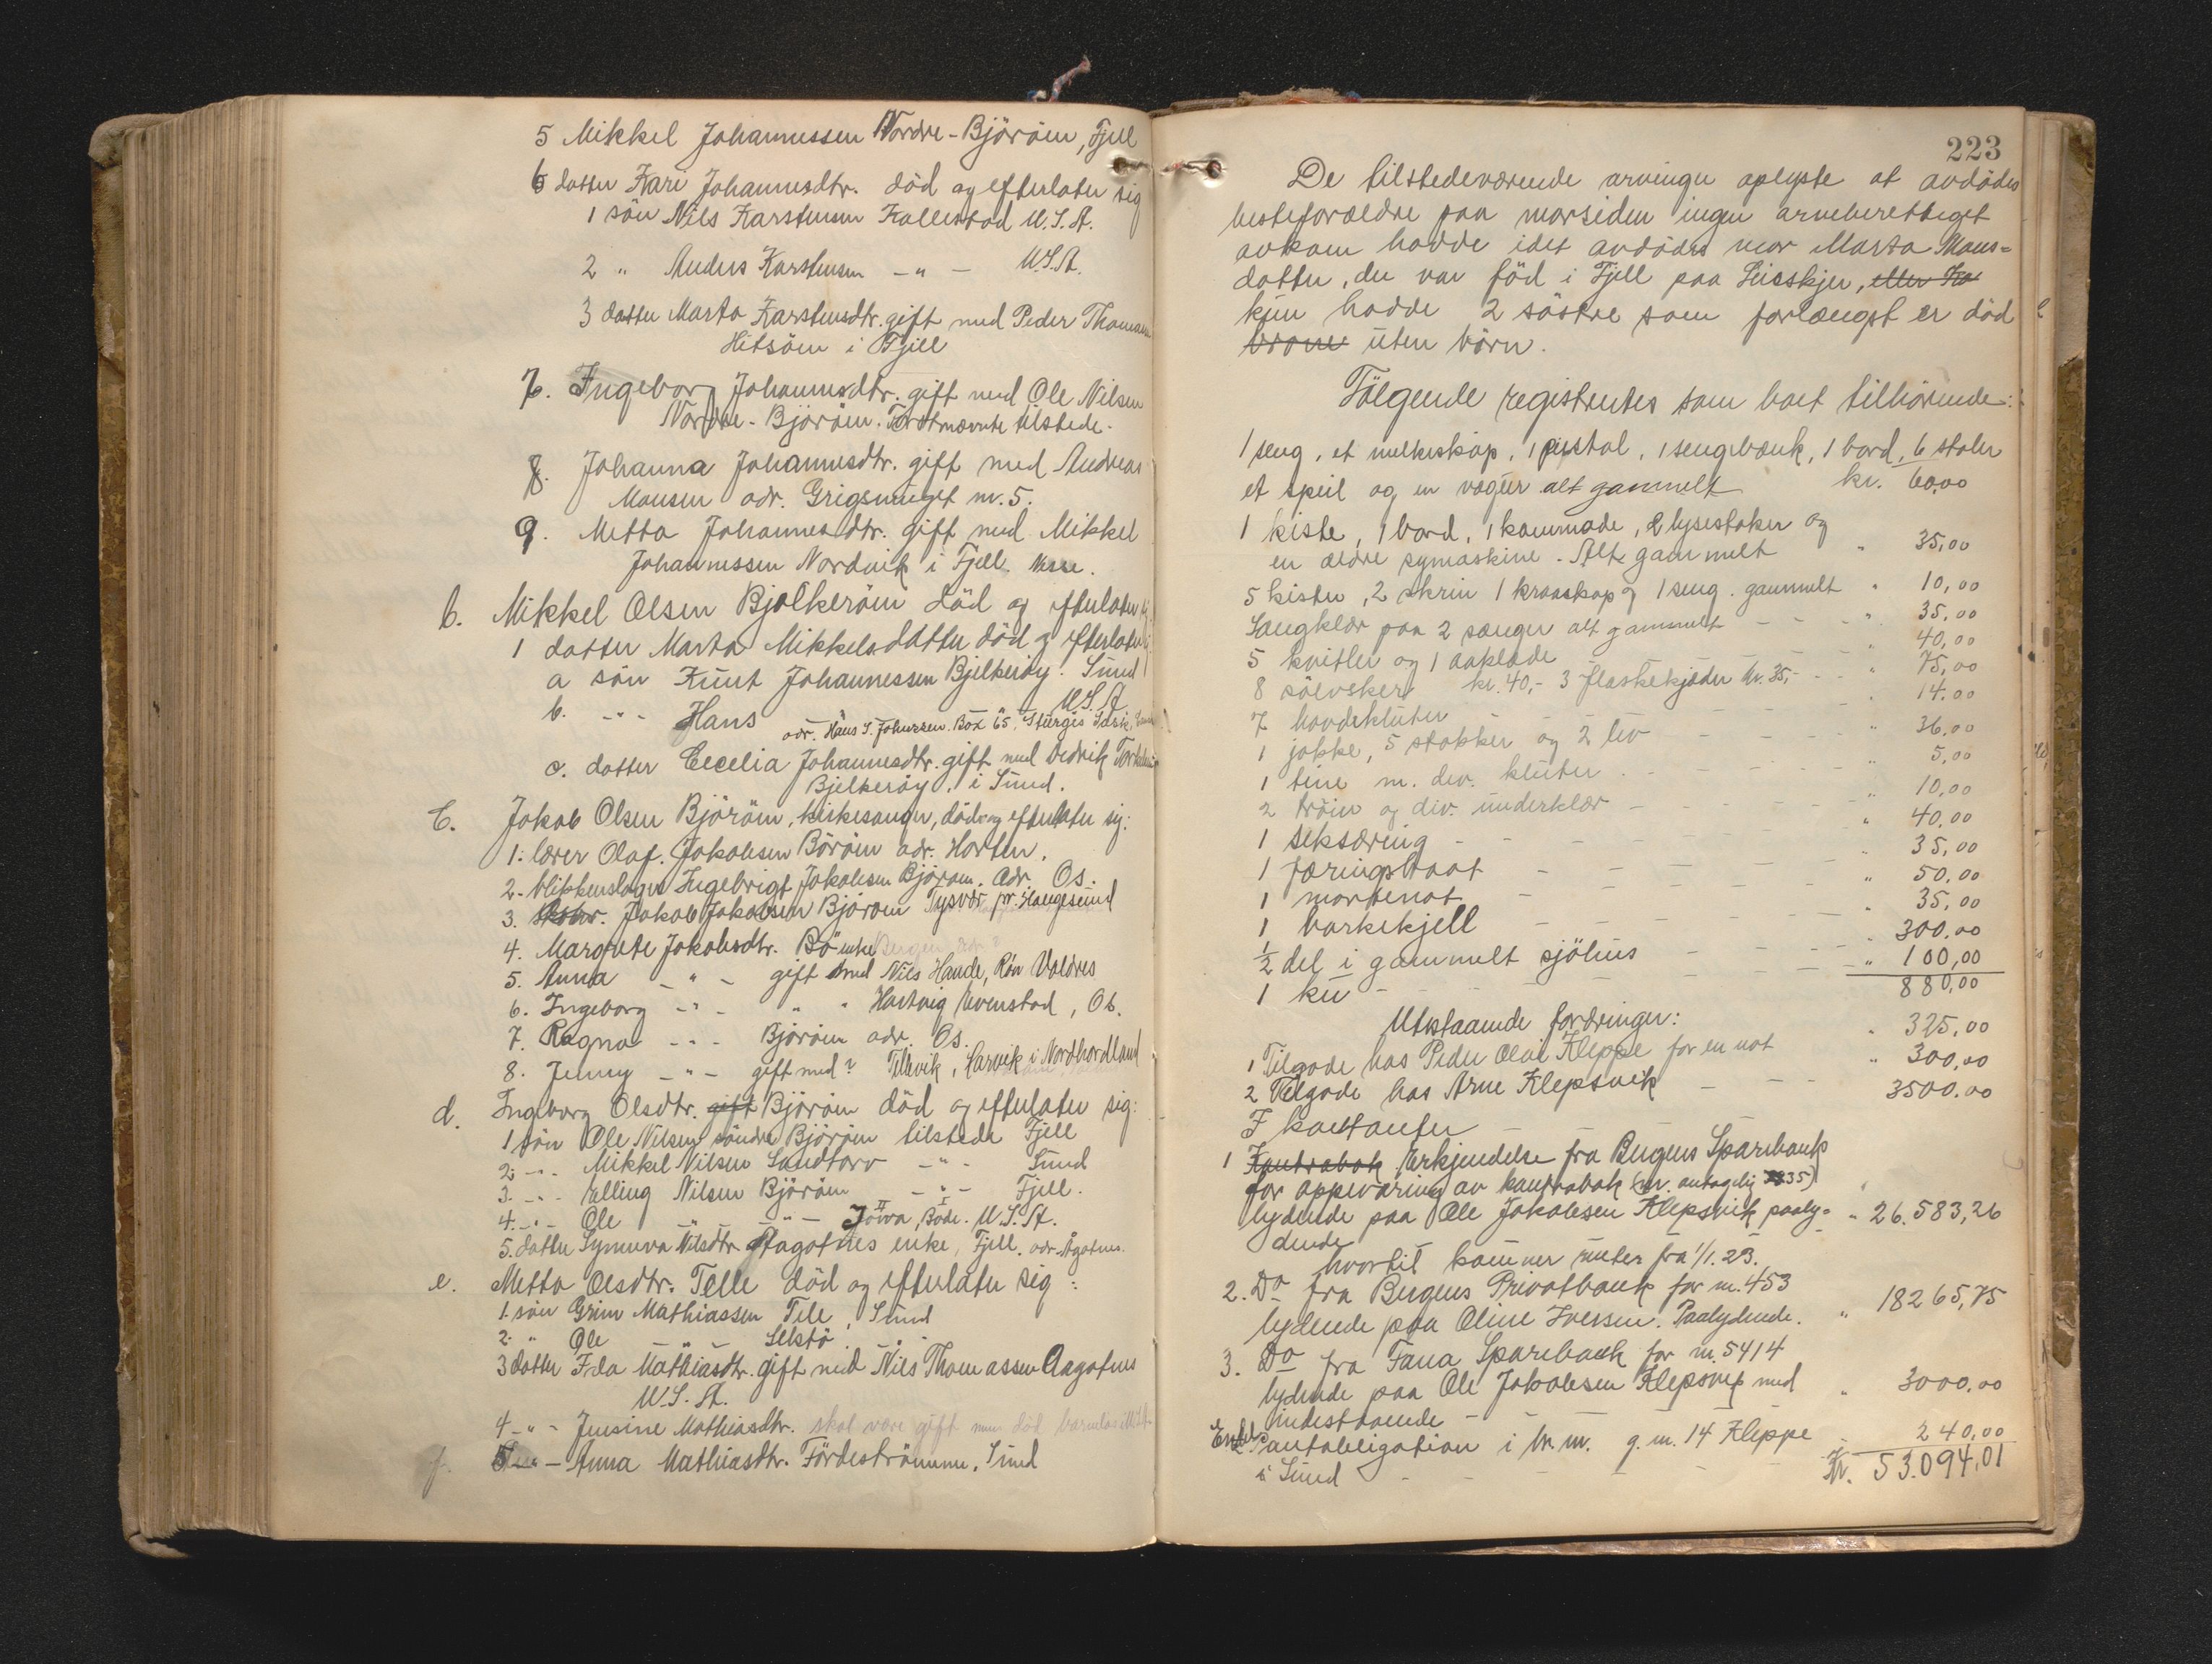 5 Mikkel Johannessen Nordre-Björöen, Fjell
6 datter Kari Johannesdtr. död og efterlater sig
1 sön Nils Karstensen Kallestad U.S.A.
2 " Anders Karstensen -"- U.S.A.
3 datter Marta Karstensdtr. gift med Peder Thomassen
Hitsöen i Fjell
7. Ingeborg Johannesdtr. gift med Ole Nilsen
Nordre-Björöen. Förstnævnte tilstede.
8. Johanna Johannesdtr. gift med Andreas
Monsen adr. Grigsmuget nr. 5.
9. Metta Johannesdtr. gift med Mikkel
Johannessen Nordvik i Fjell.
b. Mikkel Olsen Bjelkeröen död og efterlater sig:
1 datter Marta Mikkelsdatter död og efterlater sig
a sön Knut Johannessen Bjelkeröy. Sund
b. -"- Hans U.S.A.
adr. Hans J. Johnssen. Box 65, Sturgis
c. datter Cecelia Johannesdtr. gift med Dedrik
Bjelkeröy, i Sund.
c. Jakob Olsen Björöen, kirkesanger, död og efterlater sig:
1. lærer Olaf. Jakobsen Böröen adr. Horten.
2. blikkenslager Ingebrigt Jakobsen Björöen. Adr. Os.
3. Jakob Jakobsen Björöen Tysvær pr. Haugesund
4. Margrete Jakobsdtr. Bö enke Bergen, adr. ?
5. Anna -"- gift med Nils Hande, Røn Valdres
6. Ingeborg -"- " " Hartvig Evenstad, Os.
7. Ragna -"- Björöen adr. Os.
8. Jenny -"- gift med ? Tellevik, Garvik i Nordhordland
d. Ingeborg Olsdtr. gift Björöen död og efterlater sig:
1 sön Ole Nilsen söndre Björöen tilstede Fjell
2. -"- Mikkel Nilsen Landtorv -"- Sund
3. -"- Elling Nilsen Björöen -"- Fjell.
4. -"- Ole -"- -"- Jowa, Bode. U.S.A.
5. datter Synneva Nilsdtr. Aagotnes enke, Fjell. adr. Ågotnes.
e. Metta Olsdtr. Telle död og efterlater sig:
1. sön Grim Mathiassen Telle, Sund
2. " Ole -"- Selstö -"-
3 datter Frda Mathiasdtr. gift med Nils Thomassen Aagotnes
U.S.A.
4 -"- Jensine Mathiasdtr. skal være gift men död barnlös
f. 5 -"- Anna Mathiasdtr. Fördeströmmen, Sund
223
De tilstedeværende arvinger oplyste at avdödes
besteforældre paa morsiden ingen arveberettiget
avkom hadde idet avdödes mor Marta Mons-
datter, der var föd i Fjell paa Leirskjer, eller Ka
kun hadde 2 söstre som forlængst er död
uten börn.
Fölgende registrertes som boet tilhörende:
1 seng, et melkeskap, 1 pustol, 1 sengebænk, 1 bord, 6 stoler
et speil og en vogur alt gammelt kr. 60,00
1 kiste, 1 bord, 1 kommode, 2 lysestaker og
en ældre symaskine. Alt gammelt " 35,00
5 kister, 2 skrin 1 kroaskap og 1 seng. gammelt " 10,00
Sengklær paa 2 senger alt gammelt - - - " 35,00
5 kvitler og 1 aaklæde - - - " 40,00
8 sölvskeer kr. 40,- 3 flaskekjeder kr. 35,- - - " 75,00
7 hovdekluter - - - " 14.00
1 jakke, 5 stakker og 2 liv - - - " 36,00
1 tine m. div. kluter - - - " 5,00
2 tröier og div. underklær - - - " 10,00
1 seksæring - - - " 40,00
1 færingsbaat - - - " 35,00
1 mortenot - - - " 50,00
1 barkekjell - - - " 35,00
1/2 del i gammelt sjöhus - - - " 300,00
1 ku - - - " 100,00
880,00
Utestaaende fordringer:
1 Tilgode hos Peder Olai Kleppe for en not " 325,00
2 Tilgode hos Arne Klepsvik - - - " 300,00
I kontanter - - - 3500.00
1 Kontrabok Erkjendelse fra Bergens Sparebank
for oppevaring av kontrabok (nr. antagelig 35)
lydende paa Ole Jakobsen Klepsvik paaly-
dende " 26.583,26
hvortil kommer renter fra 1/1. 23.
2. Do fra Bergens Privatbank for nr. 453
lydende paa Oline Iversen. Paalydende. " 18265,75
3. Do fra Fana Sparebank for nr. 5414
lydende paa Ole Jakobsen Klepsvik med
indestaaende - " 3000,00
Endel Pantobligation i br. nr. g. nr. 14 Kleppe
i Sund - - - 240,00
Kr. 53.094,01